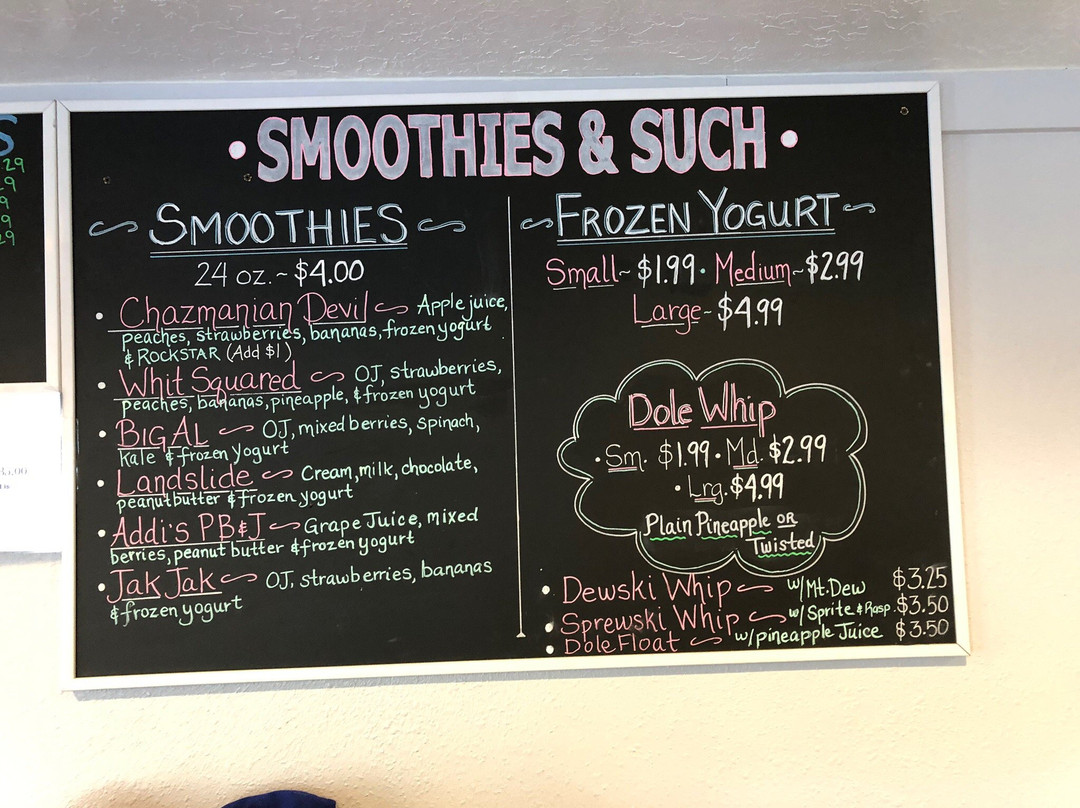 • SMOOTHIES & SUCH •
SMOOTHIES
24 oz. ~ $4.00
• Chazmanian Devil ~ Apple juice,
peaches, strawberries, bananas, frozen yogurt
& ROCKSTAR (Add $1)
• Whit Squared ~ OJ, strawberries,
peaches, bananas, pineapple, & frozen yogurt
• BIG AL ~ OJ, mixed berries, spinach,
Kale & frozen yogurt
• Landslide ~ Cream, milk, chocolate,
peanut butter & frozen yogurt
• Addi's PB&J ~ Grape Juice, mixed
berries, peanut butter & frozen yogurt
• Jak Jak ~ OJ, strawberries, bananas
& frozen yogurt
~ FROZEN YOGURT ~
Small ~ $1.99 • Medium ~ $2.99
Large ~ $4.99
Dole Whip
• Sm. $1.99 • Md. $2.99
• Lrg. $4.99
Plain Pineapple OR
Twisted
• Dewski Whip ~ w/Mt. Dew $3.25
• Sprewski Whip ~ w/Sprite & Rasp. $3.50
• Dole Float ~ w/pineapple Juice $3.50
S
.29
9
9
9
29